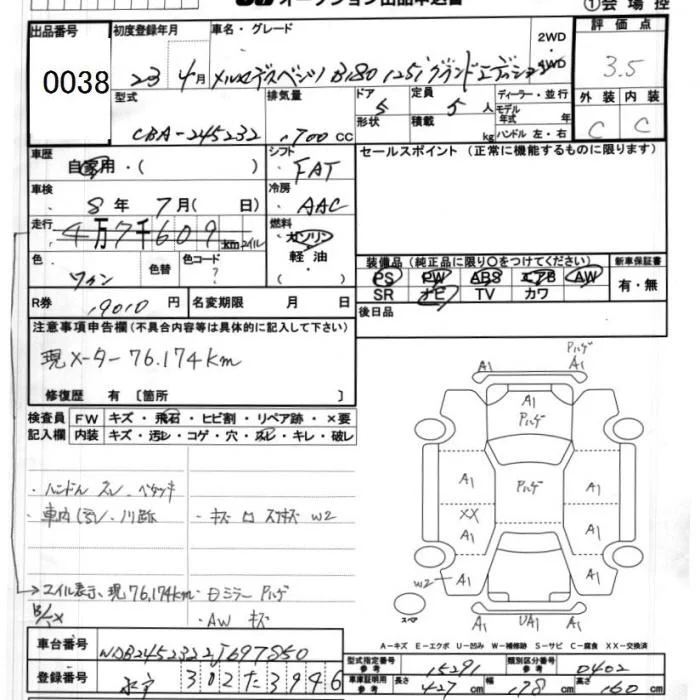 オークション出品申込書
①会場控
出品番号 初度登録年月 車名・グレード 評価点
0038
23 4月 メルセデスベンツ B180 125!グランドエディション
2WD・4WD
3.5
型式 排気量 ドア 定員 ディーラー・並行 外装 内装
CBA-245232 1,700cc 5 5人 モデル年式 年
形状 積載 kg ハンドル 左・右
C C
車歴 シフト セールスポイント(正常に機能するものに限ります)
自家用・( ) FAT
車検 冷房
8年 7月( 日) AAC
走行 燃料
4万7千609 kmマイル ガソリン
軽油
・( )
色 色替 色コード
ワイン ?
装備品(純正品に限り〇をつけてください) 新車保証書
PS PW ABS エアB AW
SR ナビ TV カワ
有・無
R券 円 名変期限 月 日
後日品
注意事項申告欄(不具合内容等は具体的に記入して下さい)
現メーター76.174km
修復歴 有〔箇所 〕
検査員 FW キズ・飛石・ヒビ割・リペア跡・×要
記入欄 内装 キズ・汚レ・コゲ・穴・スレ・キレ・破レ
・ハンドル スレ ベタツキ
・車内
→マイル表示、現76,174km
・AW キズ
ハルゲ
A1 A1
A1
ハルゲ
A1 ハルゲ A1
XX
A1 A1
W2 A1 A1
スペア A1 UA1 A1
A-キズ E-エクボ U-凹み W-補修跡 S-サビ C-腐食 XX-交換済
車台番号 WDB2452322J697850
登録番号 302 た 3946
型式指定番号 参考 15291 類別区分番号 参考 0402
車庫証明用 参考 長さ 427cm 幅 178cm 高さ 160cm